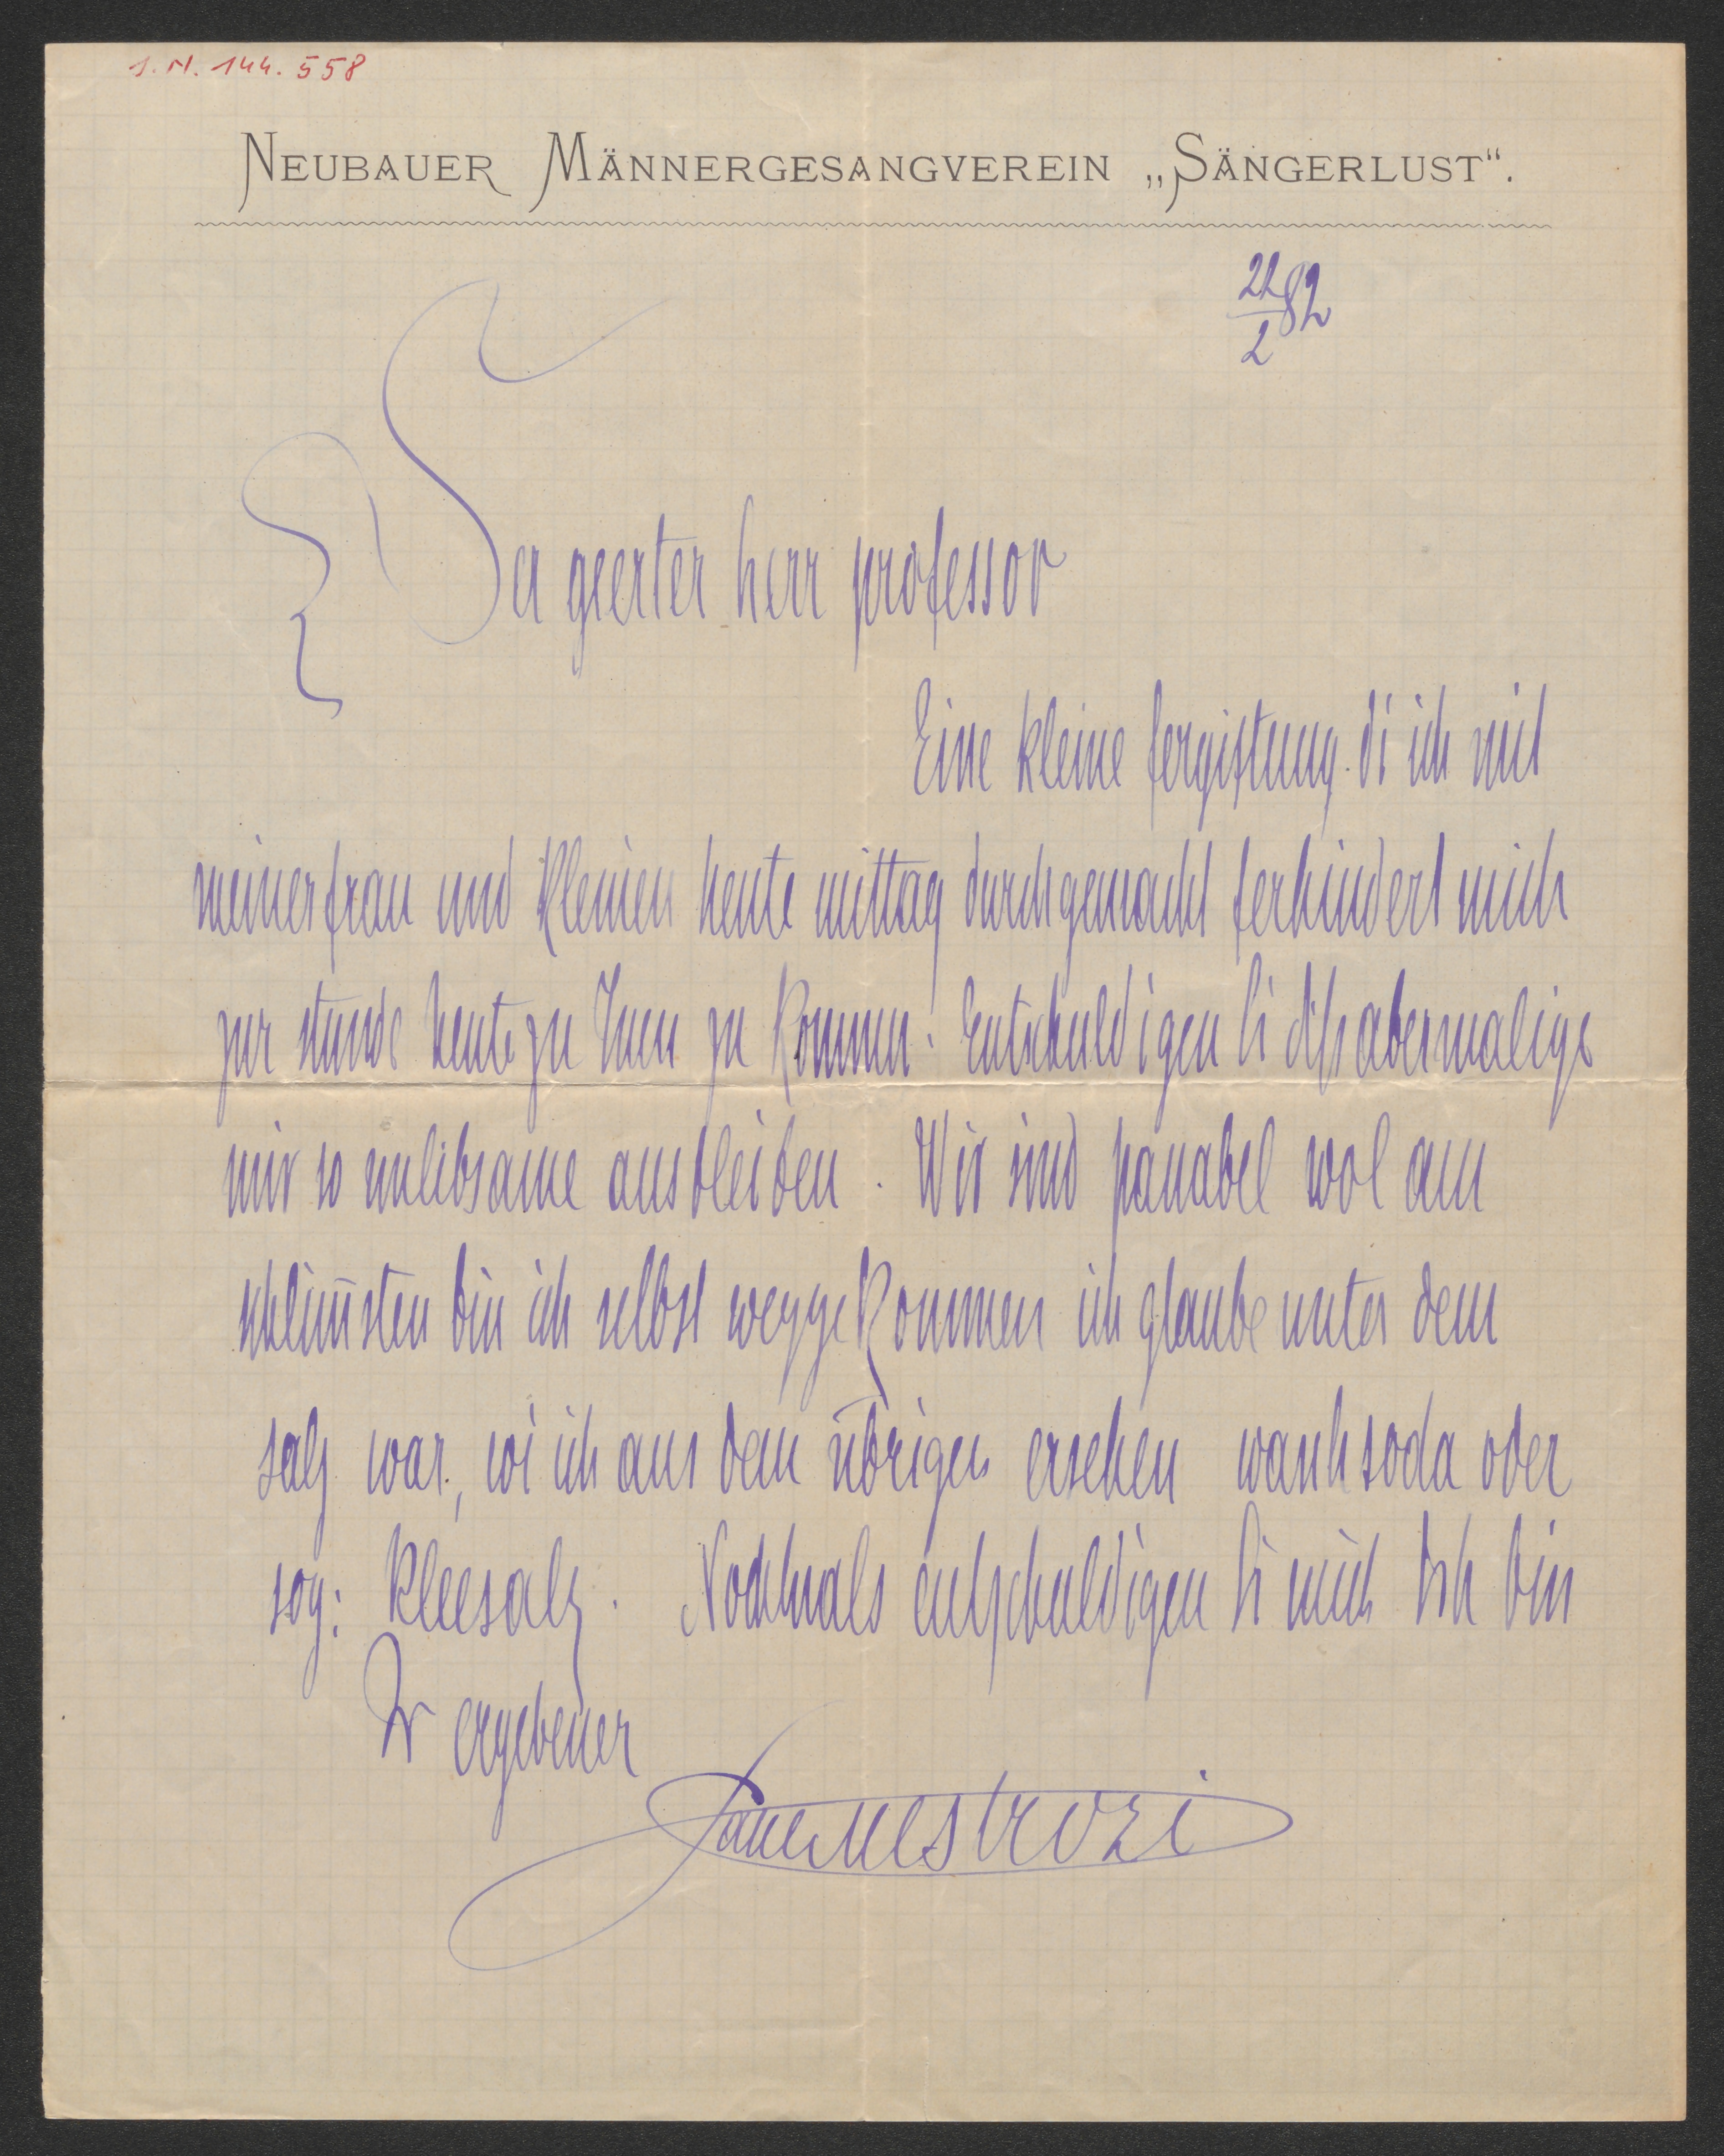 J. N. 144.558
NEUBAUER MÄNNERGESANGVEREIN „SÄNGERLUST".
22/2 82
Ser geerter herr professor
Eine kleine fergiftung di ich mit
meiner frau und kleinen heute mittag durchgemacht ferhindert mich
zur stunde heute zu Inen zu kommen! Entschuldigen Si diß abermalige
mir so unlibsame ausbleiben. Wir sind panabel wol am
schlim̄sten bin ich selbst weggekommen ich glaube unter dem
salz war, wi ich aus dem übrigen ersehen waschsoda oder
sog: kleesalz. Nochmals entschuldigen Si mich Ich bin
Ir ergebener